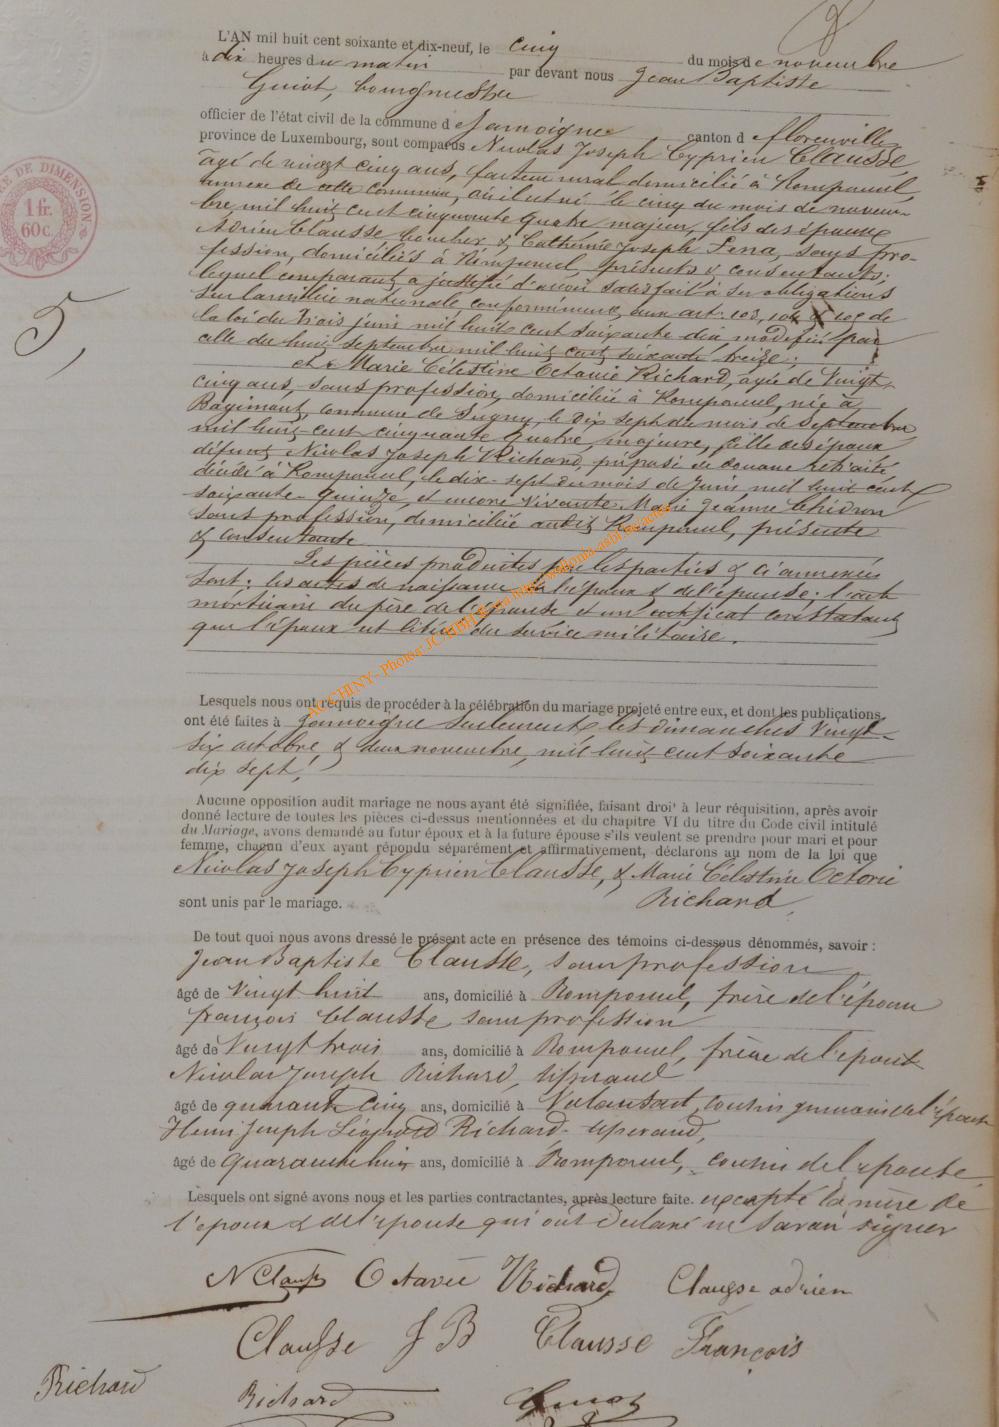 L'AN mil huit cent soixante et dix-neuf, le cinq du mois de novembre
à dix heures du matin par devant nous Jean Baptiste
Guiot, bourgmestre
officier de l'état civil de la commune d Jamoigne canton d florenville
province de Luxembourg, sont comparus Nicolas Joseph Cyprien Clausse,
âgé de vingt cinq ans, facteur rural domicilié à Romponcel,
annexe de cette commune, où il est né le cinq du mois de novem-
bre mil huit cent cinquante quatre majeur, fils des époux
Adrien Clausse boucher & Catherine Joseph sans pro-
fession, domiciliés à Romponcel, présents & consentants;
lequel comparant a justifié d'avoir satisfait à ses obligations
sur la milice nationale conformément aux art. 103, 104 & 105 de
la loi du trois juin mil huit cent soixante dix modifiée par
celle du huit septembre mil huit cent soixante treize;
et Marie Célestine Octavie Richard, agée de Vingt
cinq ans, sans profession, domiciliée à Romponcel, née à
Bagimont, commune de Sugny, le dix sept du mois de Septembre
mil huit cent cinquante quatre majeure, fille des époux
défunt Nicolas Joseph Richard, préposé de douane retraité
décédé à Romponcel, le dix-sept du mois de Juin mil huit cent
soixante-quinze, et encore vivante Marie Jeanne
sans profession, domiciliée audit Romponcel, présente
& consentante
Les pièces produites par les parties & ci annexées
sont: les actes de naissance de l'époux & de l'épouse; l'acte
mortuaire du père de l'épouse et un certificat constatant
que l'époux est libéré du service militaire.
Lesquels nous ont requis de procéder à la célébration du mariage projeté entre eux, et dont les publications
ont été faites à Jamoigne seulement les dimanches Vingt-
six octobre & deux novembre, mil huit cent soixante
dix sept!
Aucune opposition audit mariage ne nous ayant été signifiée, faisant droit à leur réquisition, après avoir
donné lecture de toutes les pièces ci-dessus mentionnées et du chapitre VI du titre du Code civil intitulé
du Mariage, avons demandé au futur époux et à la future épouse s'ils veulent se prendre pour mari et pour
femme, chacun d'eux ayant répondu séparément et affirmativement, déclarons au nom de la loi que
Nicolas Joseph Cyprien Clausse, & Marie Célestine Octavie
Richard,
sont unis par le mariage.
De tout quoi nous avons dressé le présent acte en présence des témoins ci-dessous dénommés, savoir:
Jean Baptiste Clausse, sans profession
âgé de Vingt huit ans, domicilié à Romponcel, frère de l'époux
françois Clausse, sans profession
âgé de Vingt trois ans, domicilié à Romponcel, frère de l'époux
Nicolas Joseph Richard, tisserand
âgé de quarante cinq ans, domicilié à cousin germain de l'épouse
Henri Joseph Léopold Richard tisserand,
âgé de quarante huit ans, domicilié à Romponcel, cousin de l'épouse
Lesquels ont signé avons nous et les parties contractantes, après lecture faite. excepté la mère de
l'époux & de l'épouse qui ont déclaré ne savoir signer
N Clausse Octavie Richard Clausse adrien
Clausse J B Clausse François
Richard Richard Guiot
5,
DE DIMENSION
1 fr.
60c.
AC CHINY - Photo: